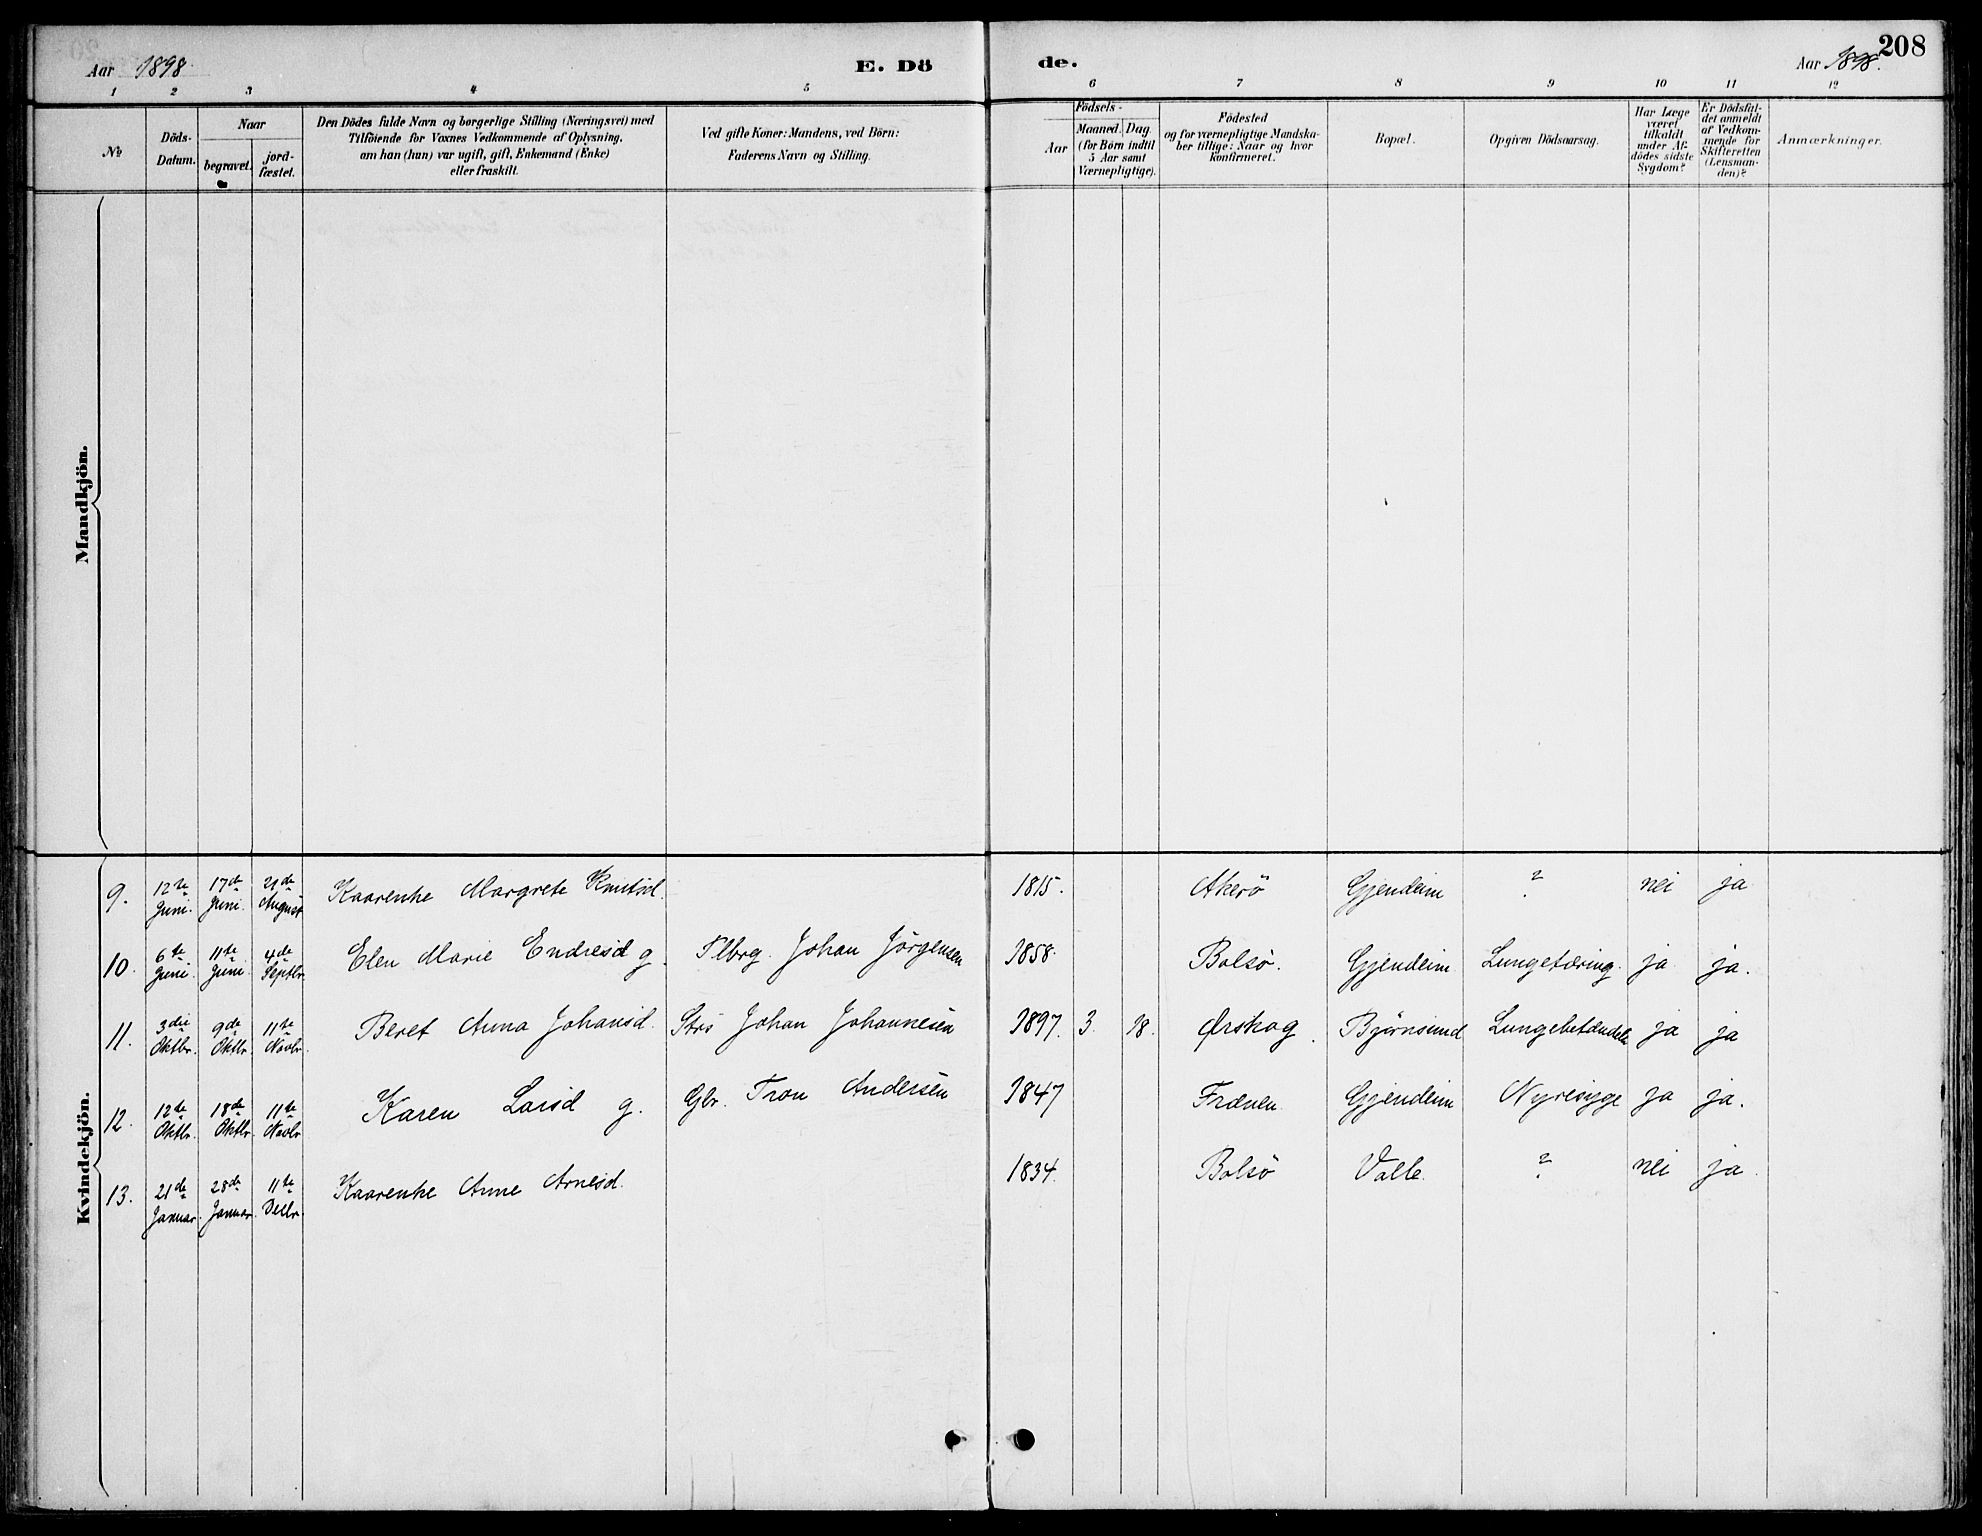 208
Aar 1898. E. Dö de. Aar 1898.
1 2 3 4 5 6 7 8 9 10 11 12
№
Döds-
Datum.
Naar
begravet.
jord-
fæstet.
Den Dödes fulde Navn og borgerlige Stilling (Næringsvei) med
Tilföiende for Voxnes Vedkommende af Oplysning,
om han (hun) var ugift, gift, Enkemand (Enke)
eller fraskilt.
Ved gifte Koner: Mandens, ved Börn:
Faderens Navn og Stilling.
Födsels-
Aar
Maaned. Dag.
(for Börn indtil
5 Aar samt
Værnepligtige).
Födested
og for værnepligtige Mandska-
ber tillige: Naar og hvor
konfirmeret.
Bopæl.
Opgiven Dödsaarsag.
Har Læge
været
tilkaldt
under Af-
dödes sidste
Sygdom?
Er Dödsfal-
det anmeldt
af Vedkom-
mende for
Skifteretten
(Lensman-
den)?
Anmærkninger.
Mandkjön.
Kvindekjön.
9. 12te Juni. 17de Juni. 21de August Kaarenke Margrete Knutsd. 1815. Akerö Gjendeim ? nei ja
10. 6te Juni. 11te Juni. 4de Septbr. Elen Marie Endresd g. Flbrg. Johan Jörgensen 1858. Bolsö. Gjendeim Lungetæring. ja ja.
11. 3die Oktbr. 9de Oktbr. 11te Novbr. Beret Anna Johansd. Strs Johan Johannesen 1897. 3. 18. Ørskog. Bjørnsund Lungebetændelse ja ja
12. 12te Oktbr. 18de Oktbr. 11te Novbr. Karen Larsd g. Gbr. Tron Andersen 1847 Fræven Gjendeim Nyresyge ja ja.
13. 21de Januar. 28de Januar. 11te Decbr. Kaarenke Anne Arnesd. 1834. Bolsö Valle. ? nei ja